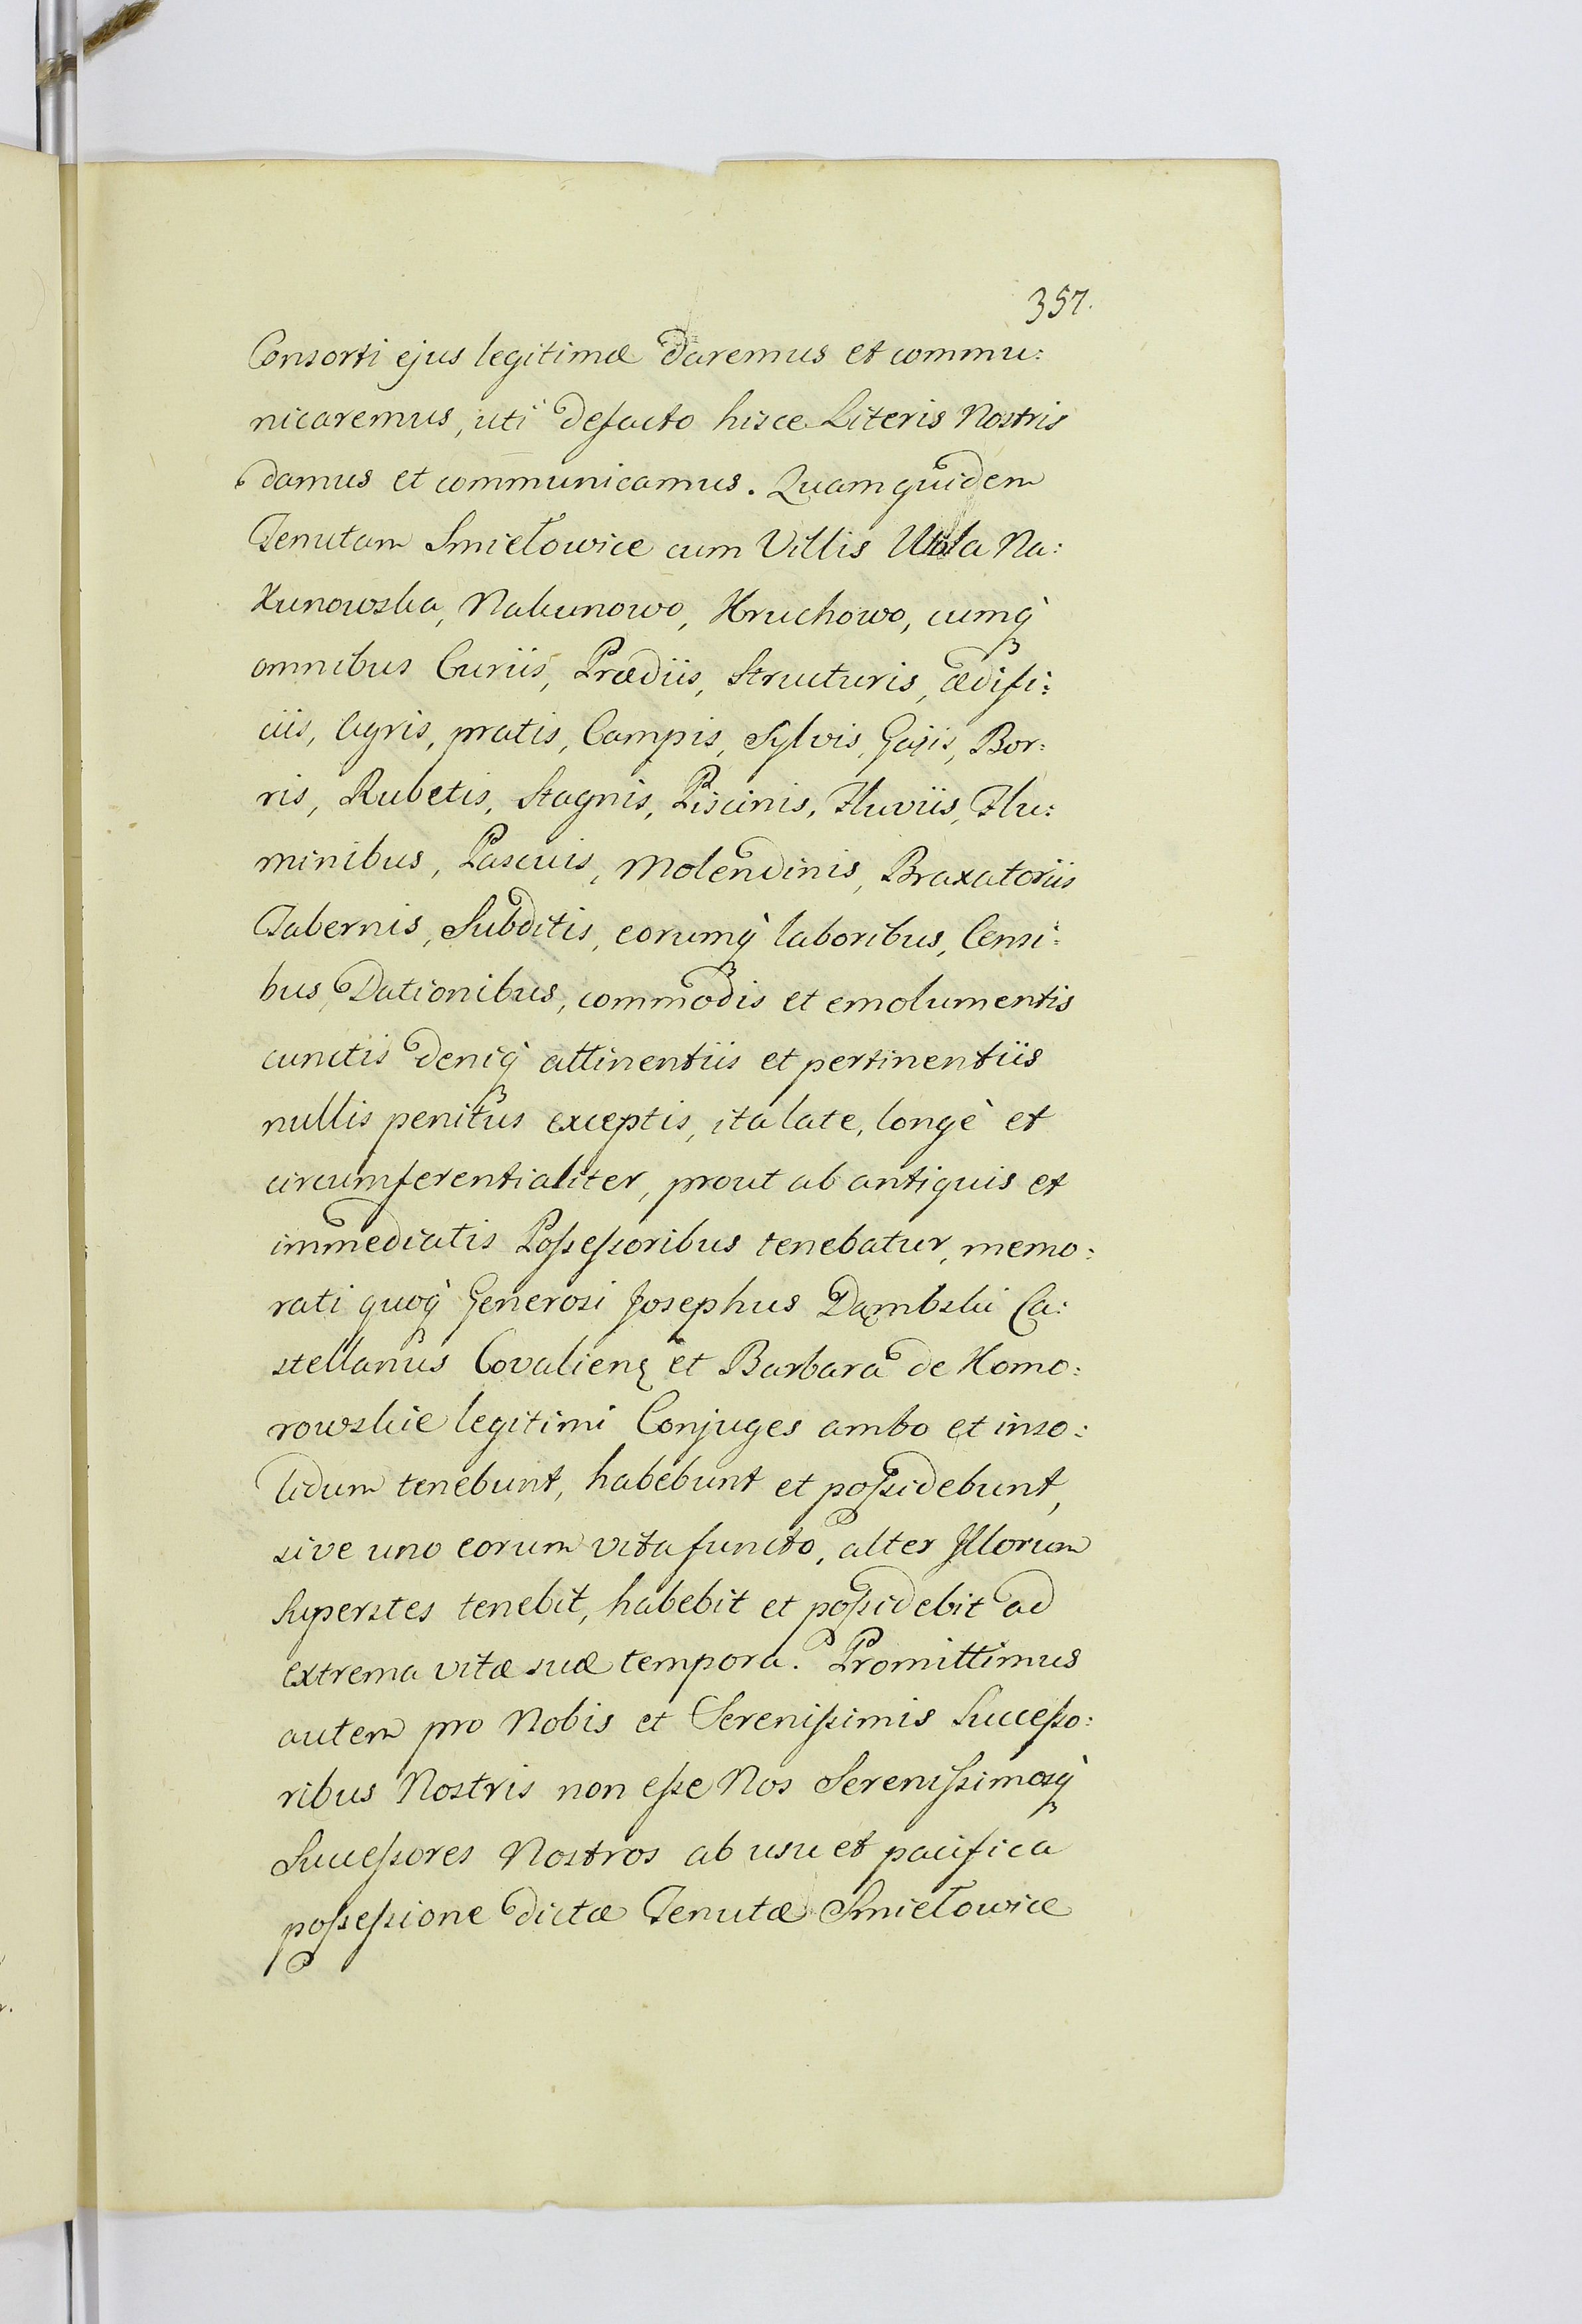 357.
Consorti ejus legitimæ daremus et commu:
nicaremus, uti defacto hisce Literis Nostris
damus et communicamus. Quam quidem
Tenutam Smiełowice cum Villis Wola Na:
kunowska, Nakunowo, Kruchowo, cumq̀
omnibus Curiis, Prædiis, Structuris, ædifi:
ciis, Agris, pratis, Campis, Sylvis, Gajis, Bor:
ris, Rubetis, Stagnis, Piscinis, Fluviis, Flu:
minibus, Pascuis, Molendinis, Braxatoriis
Tabernis, Subditis, eorumq̀ laboribus, Censi:
bus, Dationibus, commodis et emolumentis
cunctis deniq̀ attinentiis et pertinentiis
nullis penitus exceptis, ita late, longè et
circumferentialiter, prout ab antiquis et
immediatis Poſseſsoribus tenebatur, memo:
rati quoq̀ Generosi Josephus Dąmbski Ca:
stellanus Covalienς et Barbara de Komo:
rowskie legitimi Conjuges ambo et inso:
lidum tenebunt, habebunt et poſsidebunt,
sive uno eorum vita functo, alter Illorum
Superstes tenebit, habebit et poſsidebit ad
extrema vitæ suæ tempora. Promittimus
autem pro Nobis et Sereniſsimis Succeſso:
ribus Nostris non eſse Nos Sereniſsimosq̀
Succeſsores Nostros ab usu et pacifica
poſseſsione dictæ Tenutæ Smiełowice